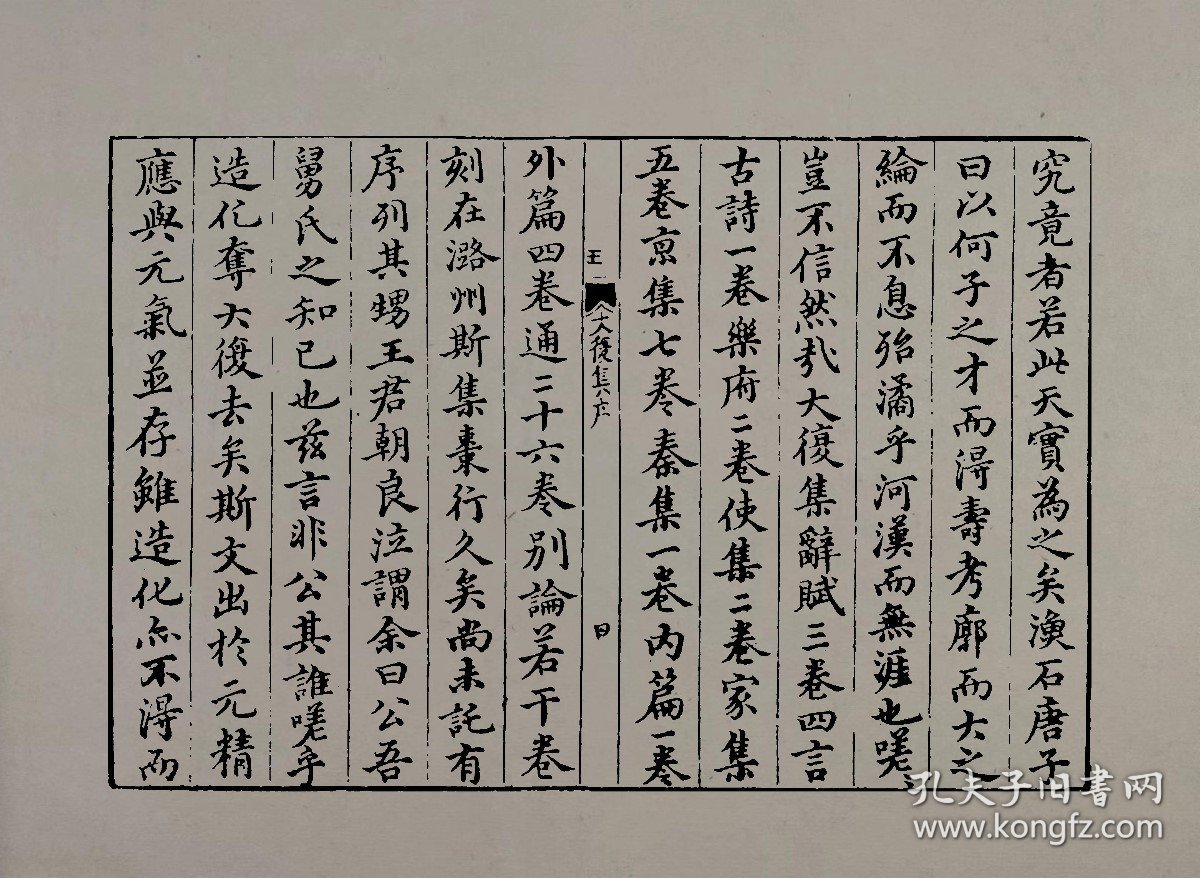 究竟者若此天實為之矣漁石唐子
曰以何子之才而得壽考廓而大之
綸而不息殆潏乎河漢而無涯也嗟
豈不信然哉大復集辭賦三卷四言
古詩一卷樂府二卷使集二卷家集
五卷京集七卷秦集一卷內篇一卷
王
大復集序
日
外篇四卷通二十六卷別論若干卷
刻在潞州斯集棗行久矣尚未託有
序列其甥王君朝良泣謂余曰公吾
舅氏之知已也茲言非公其誰嗟乎
造化奪大復去矣斯文出於元精
應與元氣並存雖造化亦不得而
孔夫子旧书网
www.kongfz.com